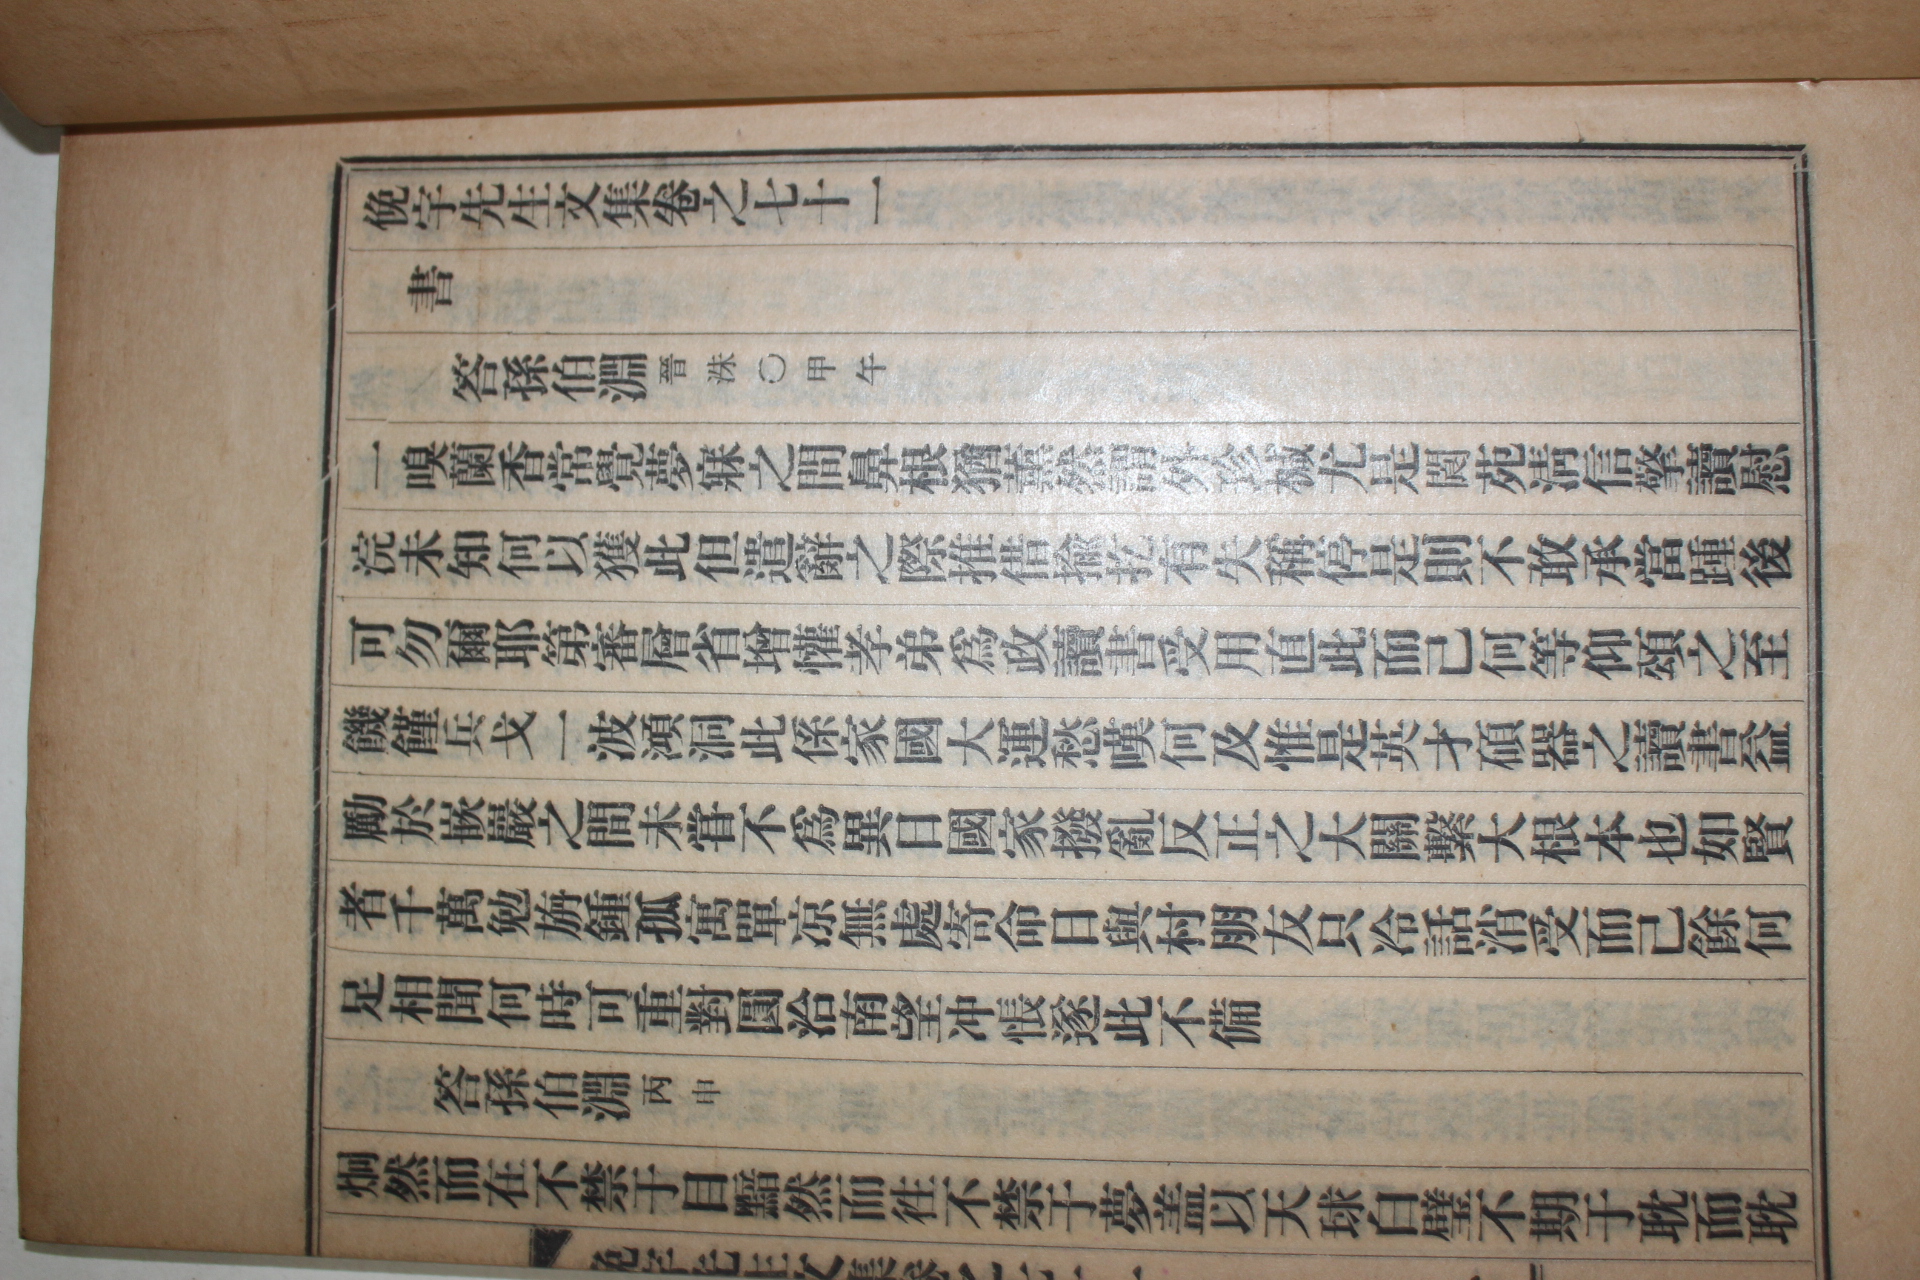 俛宇先生文集卷之七十一
書
答孫伯淵晉洙○甲午
一嗅蘭香常覺夢寐之間鼻根猶薰然謂外珍緘尤是閬苑淸信擎讀慰
浣未知何以獲此但遣辭之際推借揄抗有失稱停是則不敢承當踵後
可勿爾耶第審層省增懽孝弟爲政讀書受用直此而已何等仰頌之至
饑饉兵戈一波澒洞此係家國大運愁嘆何及惟是英才碩器之讀書益
勵於嵌巖之間未嘗不爲異日國家撥亂反正之大關繫大根本也如賢
者千萬勉旃鍾孤寓單凉無處寄命日與村朋友只冷話消受而已餘何
足相聞何時可重對圓洽南望冲悵遂此不備
答孫伯淵丙申
炯然而在不禁于目黯然而往不禁于夢盖以天球白璧不期于耽而耽
俛宇先生文集卷之七十一